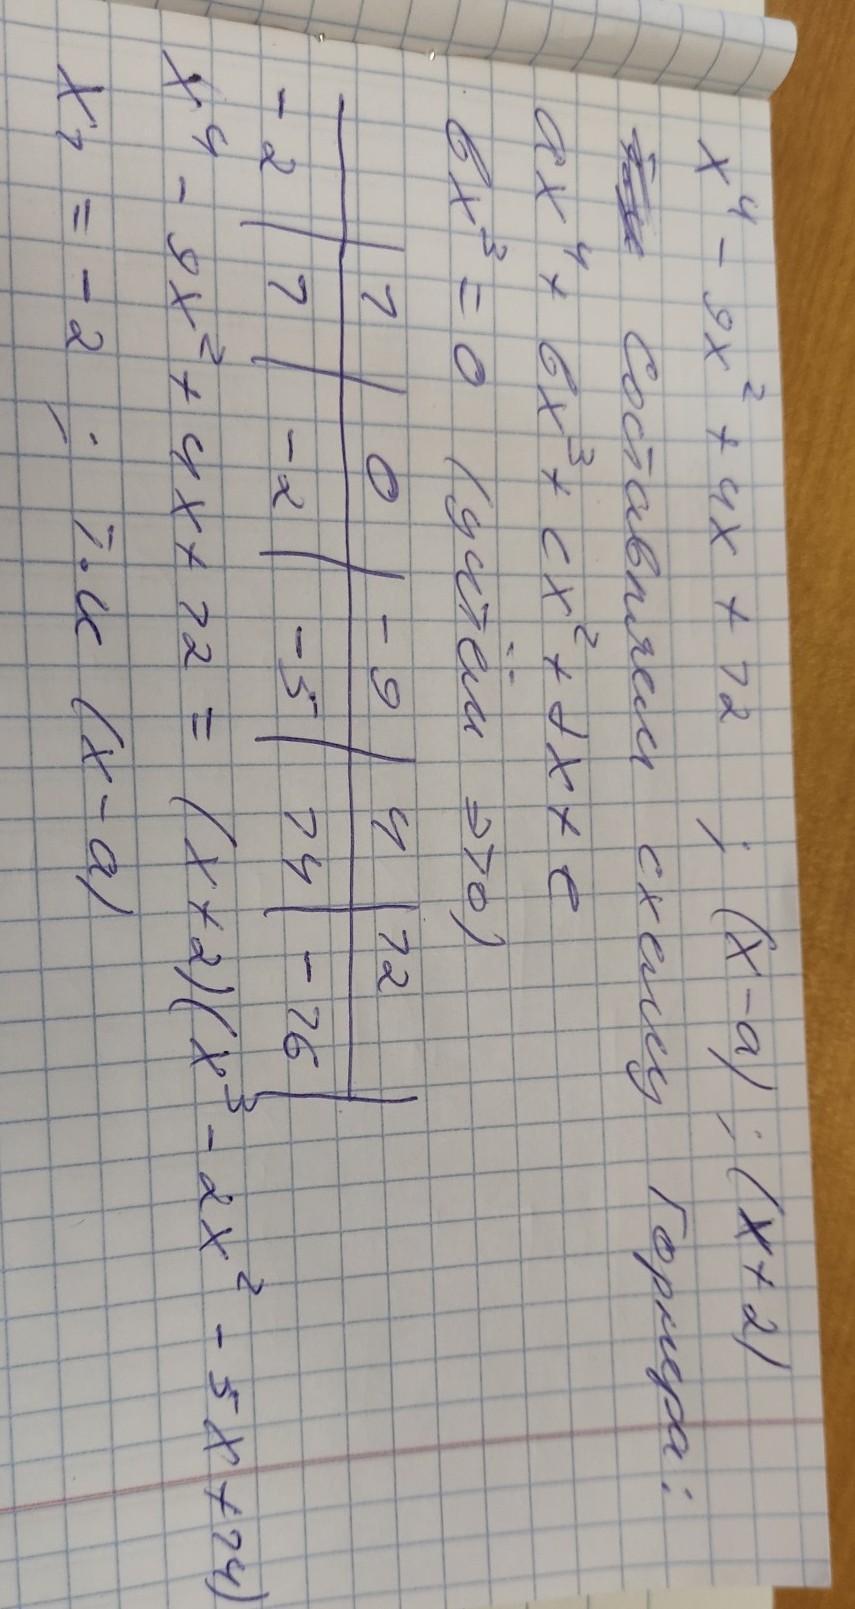 x⁴ - 9x² + 4x + 12 ; (x-a) ; (x+2)
Составляем схему Горнера:
ax⁴ + bx³ + cx² + dx + e
bx³ = 0 (учтём это)
1 | 0 | -9 | 4 | 12
-2 | 1 | -2 | -5 | 14 | -16
x⁴ - 9x² + 4x + 12 = (x+2)(x³ - 2x² - 5x + 14)
x₁ = -2 ; т.к (x-a)